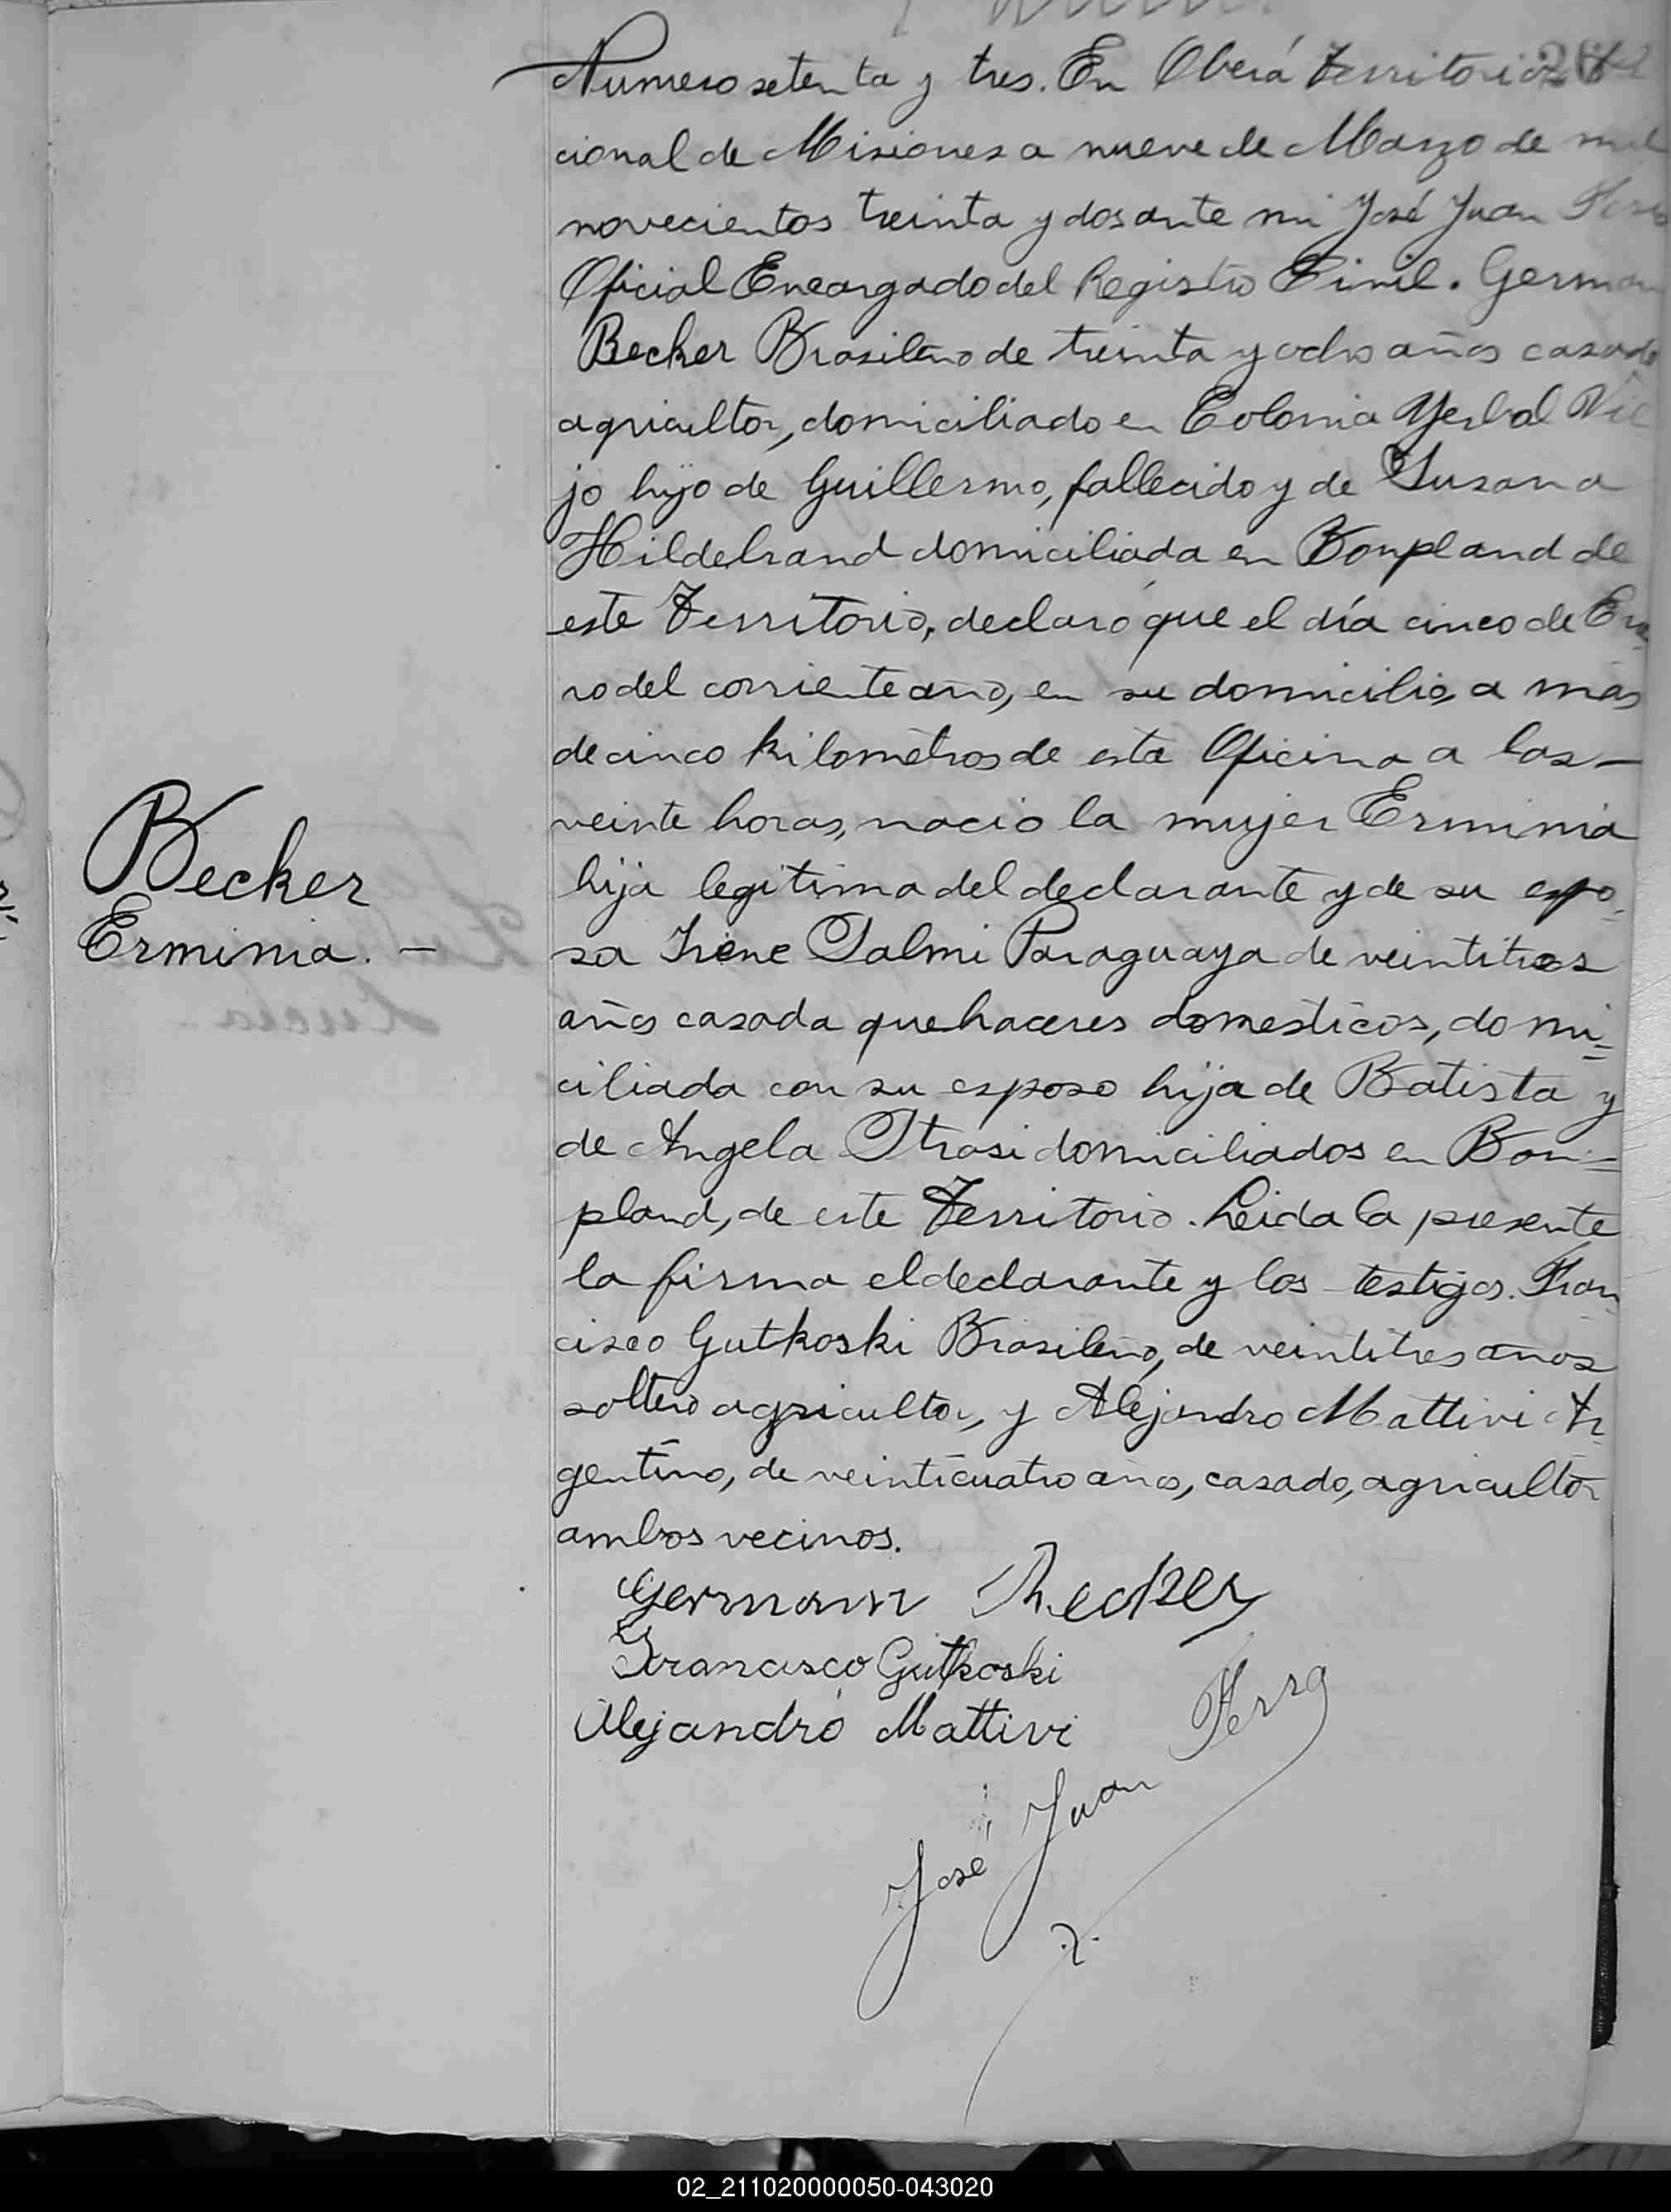 Numero setenta y tres. En Oberá Territorio
cional de Misiones a nueve de Marzo de mil
novecientos treinta y dos ante mi José Juan
Oficial Encargado del Registro Civil. German
Becker Brasileño de treinta y ocho años casado
agricultor, domiciliado en Colonia Yerbal Vie
jo hijo de Guillermo, fallecido y de Susana
Hildebrand domiciliada en Bonpland de
este Territorio, declaró que el día cinco de Ene
ro del corriente año, en su domicilio, a mas
de cinco kilometros de esta Oficina a las —
veinte horas, nacio la mujer Erminia
hija legitima del declarante y de su espo-
sa Irene Dalmi Paraguaya de veintitres
años casada quehaceres domesticos, domi=
ciliada con su esposo hija de Batista y
de Angela Strasi domiciliados en Bon=
pland, de este Territorio. Leida la presente
la firma el declarante y los testigos. Fran
cisco Gutkoski Brasileño, de veintitres años
soltero agricultor, y Alejandro Mattivi Ar
gentino, de veinticuatro años, casado, agricultor
ambos vecinos.
Becker
Erminia. —
Germann Becker
Francisco Gutkoski
Alejandro Mattivi
José Juan Ferra
02_211020000050-043020